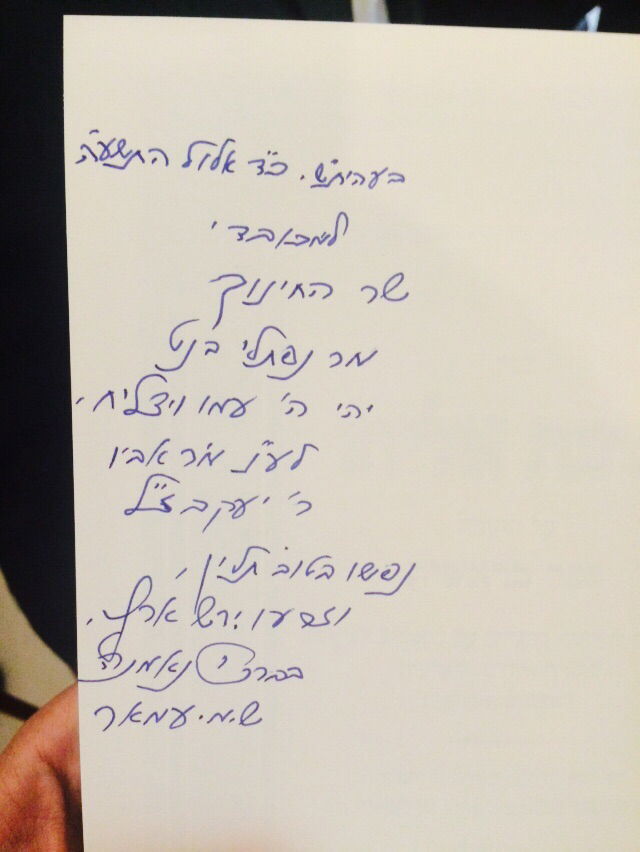 בעהית"ש. כ"ד אלול התשע"ה
למכובדי,
שר החינוך
מר נפתלי בנט
יהי ה' עמו ויצליח,
לע"נ מו"ר אביו
ר' יעקב ז"ל
נפשו בטוב תלין,
וזרעו ירש ארץ.
בברכה נאמנה
ש.מ. עמאר